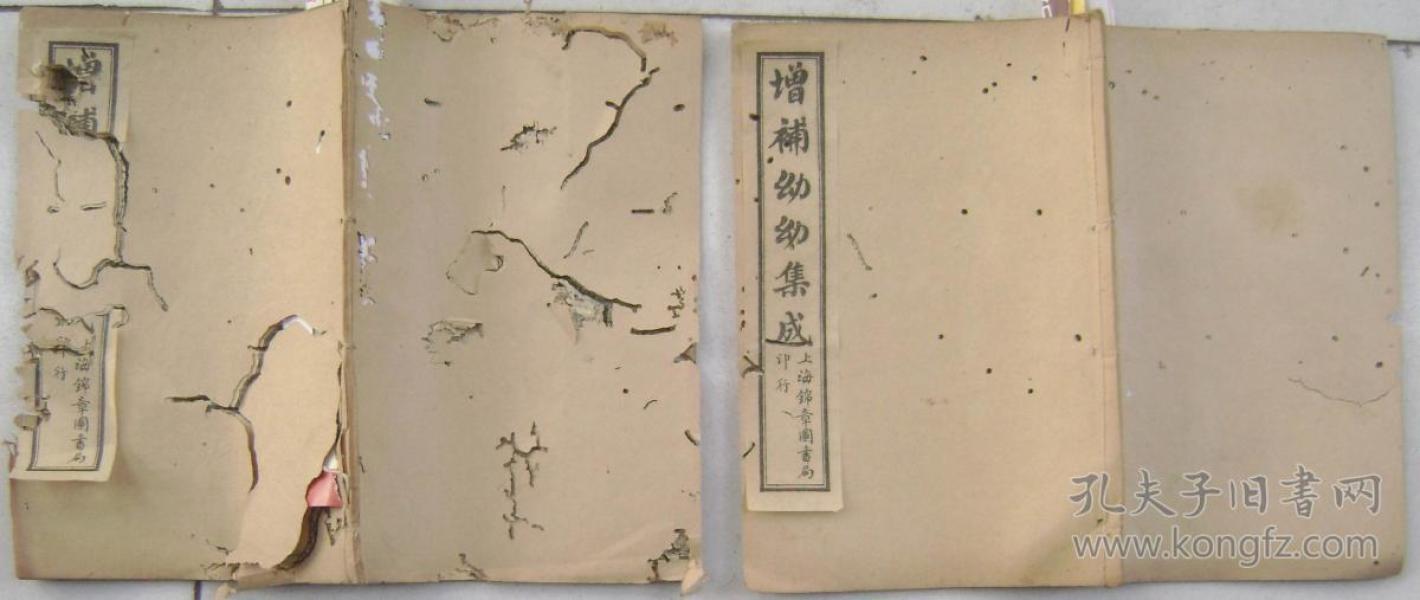 增補
上海錦章圖書局
印行
增補幼幼集成
上海錦章圖書局
印行
孔夫子旧書网
www.kongfz.com